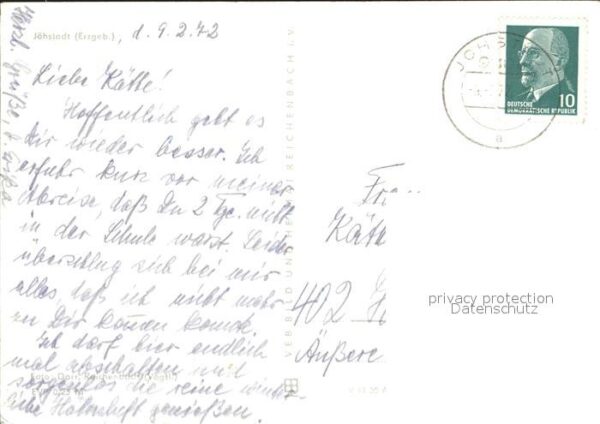 Jöhstadt (Erzgeb.), d. 9.2.72
Liebe Kätte!
Hoffentlich geht es
Dir wieder besser. Ich
erfuhr kurz vor meiner
Abreise, daß Du 2 Tge. nicht
in der Schule warst. Leider
überschlug sich bei mir
alles, daß ich nicht mehr
zu Dir kommen konnte.
Ich darf hier endlich
mal abschalten und
sorgenlos die reine
Höhenluft genießen.
Herzl. Grüße
VEB BILD UND HEIMAT REICHENBACH i. V.
DEUTSCHE
DEMOKRATISCHE REPUBLIK
10
a
Fr
Käth
402
Äußere
privacy protection
Datenschutz